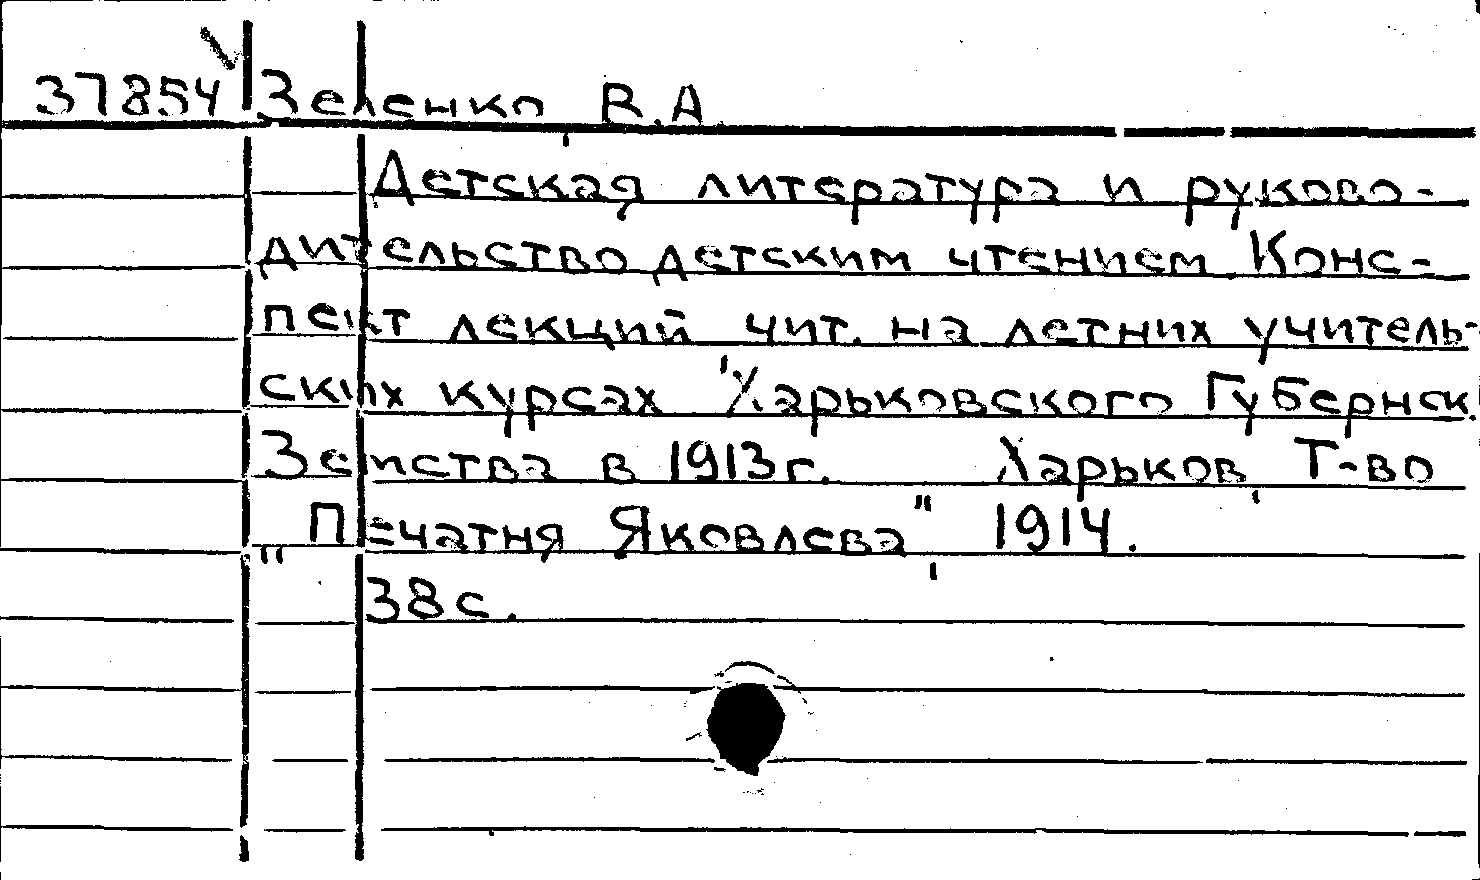 37854 Зеленко, В.А.
Детская литература и руково-
дительство детским чтением. Конс-
пект лекций, чит. на летних учитель-
ских курсах Харьковского Губернск.
Земства в 1913г. Харьков, Т-во
„Печатня Яковлева", 1914.
38с.